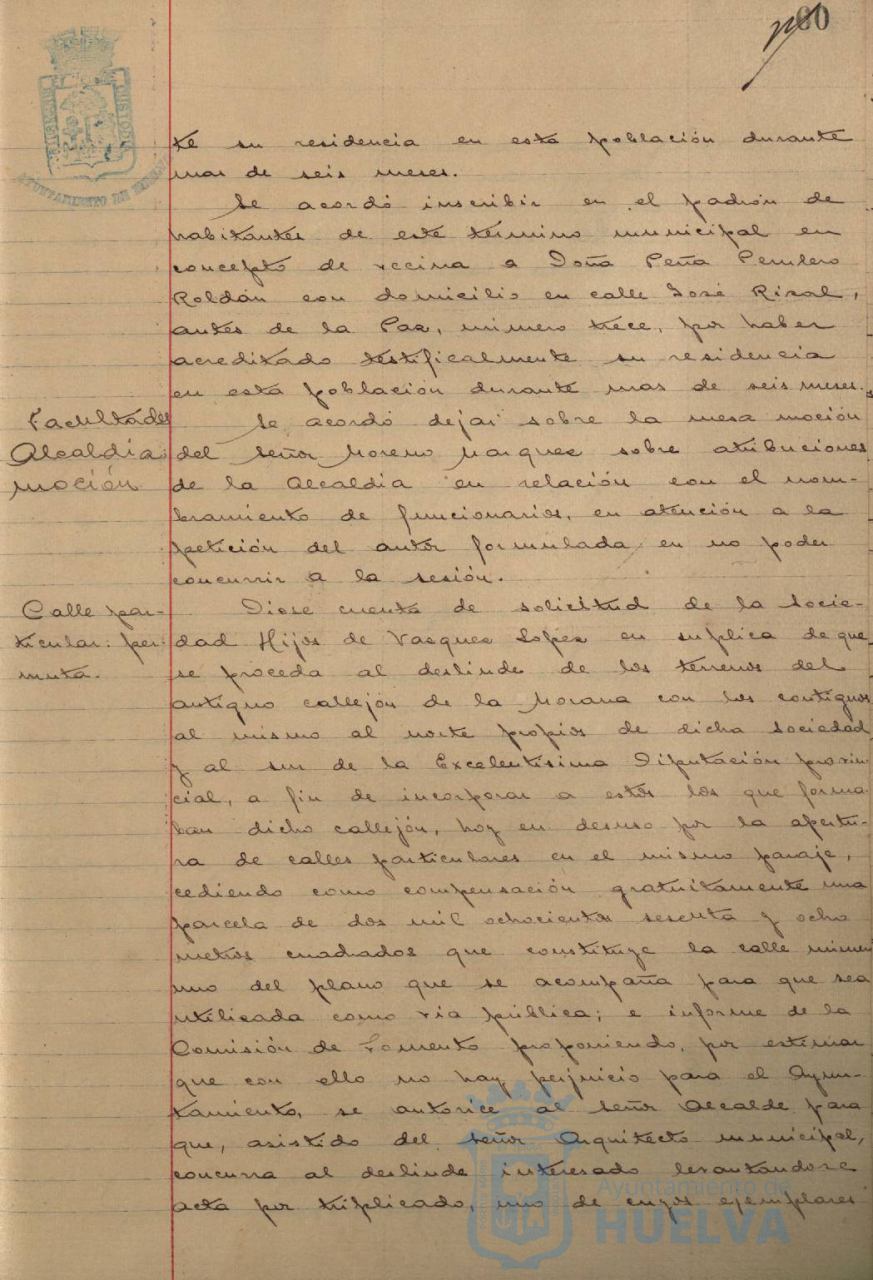 60
te su residencia en esta población durante
mas de seis meses.
Se acordó inscribir en el padrón de
habitantes de este término municipal en
concepto de vecina a Doña Peña Perulero
Roldán con domicilio en calle José Rizal,
antes de la Paz, número trece, por haber
acreditado testificalmente su residencia
en esta población durante mas de seis meses.
Facultades
Alcaldia
moción
Se acordó dejar sobre la mesa moción
del señor Moreno Marquez sobre atribuciones
de la Alcaldia en relación con el nom-
bramiento de funcionarios, en atención a la
petición del autor formulada en no poder
concurrir a la sesión.
Calle par-
ticular: per-
muta.
Diose cuenta de solicitud de la Socie-
dad Hijos de Vasquez Lopez en suplica de que
se proceda al deslinde de los terrenos del
antiguo callejón de la Morana con los contiguos
al mismo al norte propios de dicha Sociedad
y al sur de la Excelentísima Diputación provin
cial, a fin de incorporar a estos los que forma-
ban dicho callejón, hoy en desuso por la apertu-
ra de calles particulares en el mismo paraje,
cediendo como compensación gratuitamente una
parcela de dos mil ochocientos sesenta y ocho
metros cuadrados que constituye la calle número
uno del plano que se acompaña para que sea
utilizada como via pública; e informe de la
Comisión de Fomento proponiendo, por estimar
que con ello no hay perjuicio para el Ayun-
tamiento, se autorice al señor Alcalde para
que, asistido del señor Arquitecto municipal,
concurra al deslinde interesado levantandose
acta por triplicado, uno de cuyos ejemplares
AYUNTAMIENTO DE HUELVA
Ayuntamiento de
HUELVA